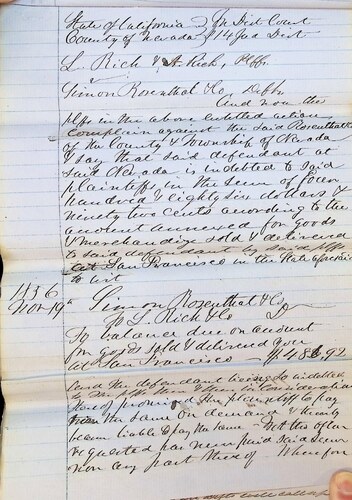 State of California In Dist Court
County of Nevada 14 Jud Dist
L. Rich & A Rich, Plffs
v
Simon Rosenthal & Co, Defts
And now the
plffs in the above entitled action
Complain against the said Rosenthal & Co
of the County & Township of Nevada
& say that said defendant at
said Nevada is indebted to said
plaintiffs in the sum of four
hundred & eighty six dollars &
ninety two cents according to the
account annexed for goods
& merchandize sold & delivered
to said defendants by said plffs
at San Francisco in the State aforesaid
to wit
1856 Simon Rosenthal & Co
Nov 19 To L. Rich & Co Dr
To balance due on account
for goods sold & delivered you
at San Francisco $486 92
and the defendant being so indebted
to the plffs in consideration
thereof promised the plaintiffs to pay
the same on demand & thereby
became liable to pay the same Yet tho often
requested has never paid said sum
nor any part thereof Wherefore